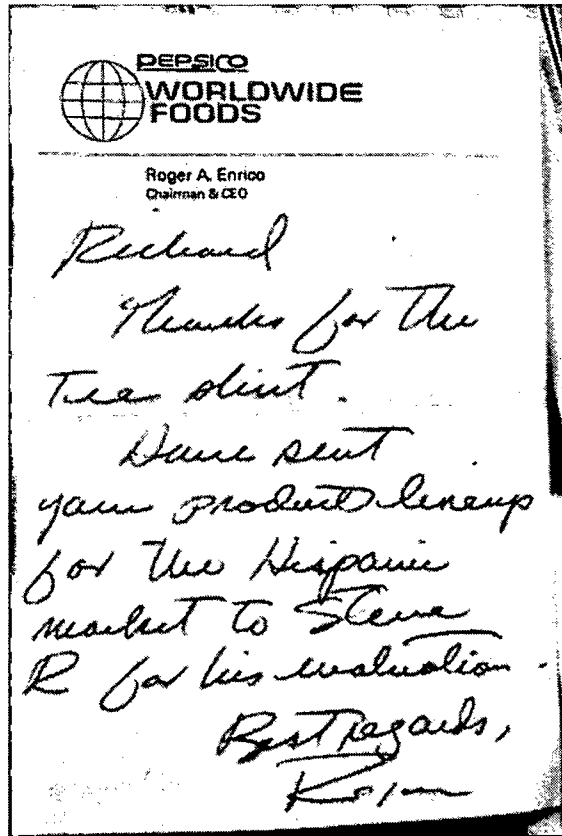 PEPSICO
WORLDWIDE
FOODS
Roger A. Enrico
Chairman & CEO
Richard
Thanks for the
Tee shirt.
Have sent
your product lineup
for the Hispanic
market to Steve
R for his evaluation.
Best regards,
Roger